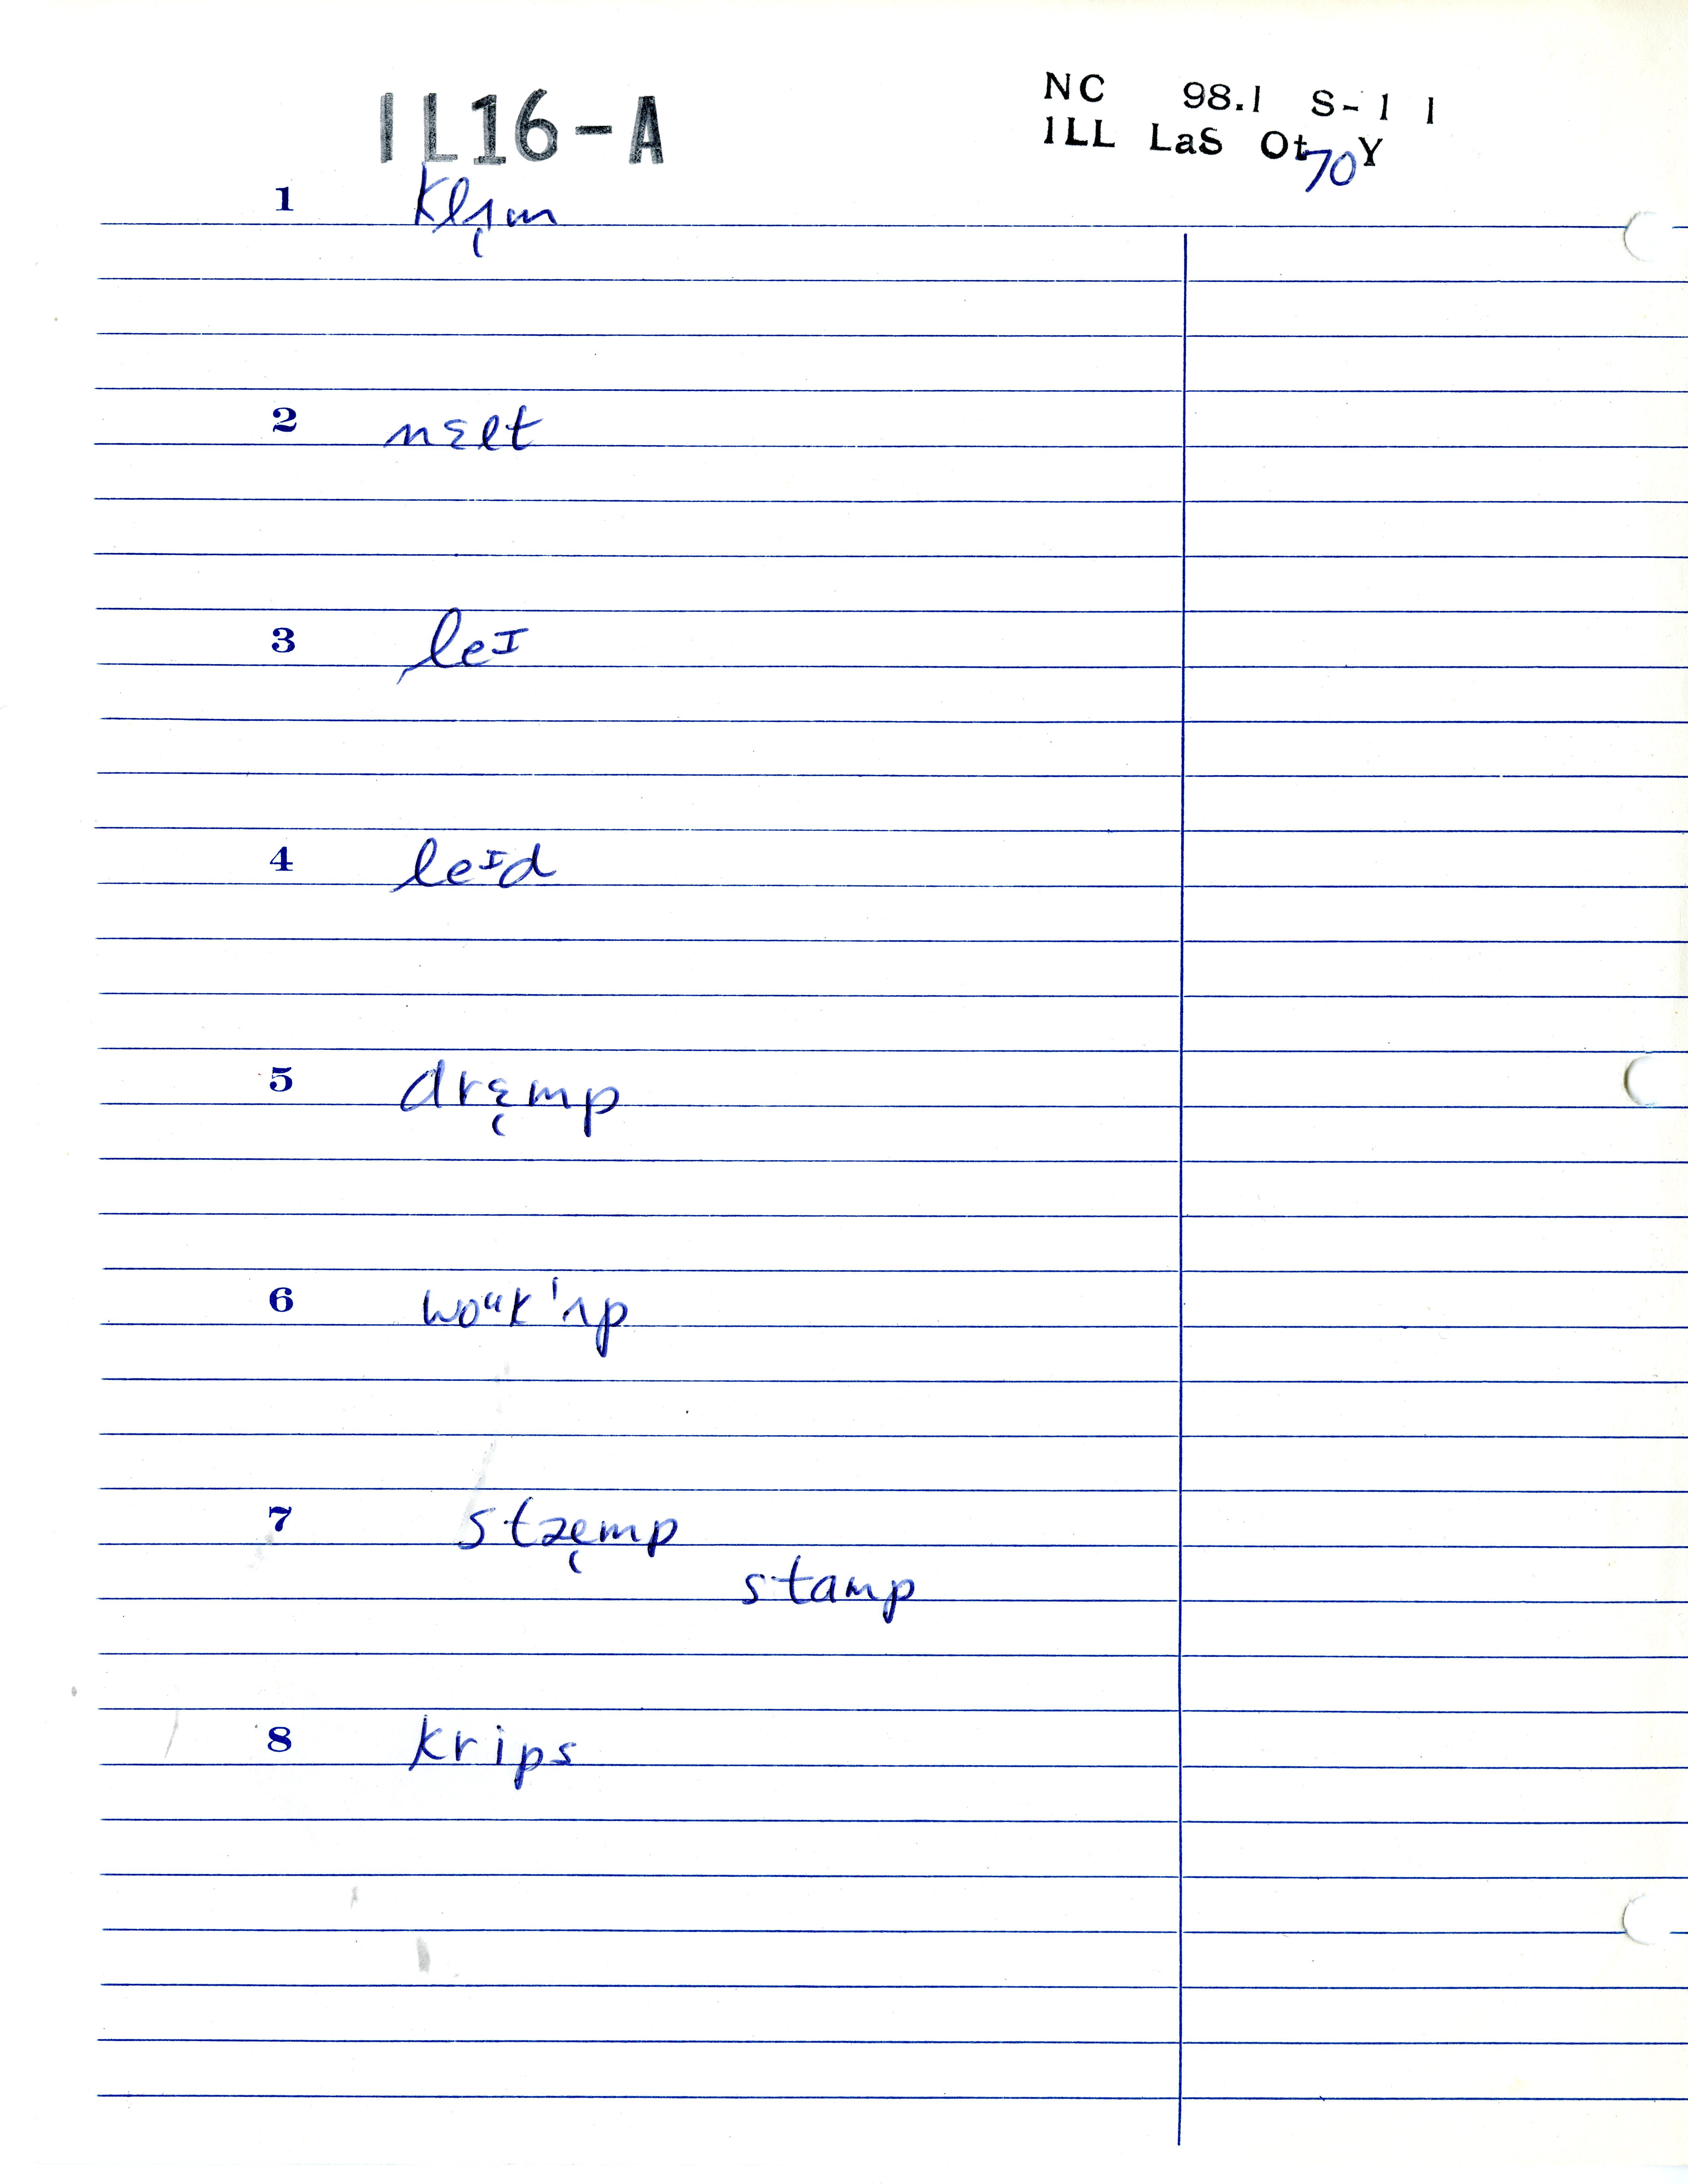 IL16-A
NC 98.1 S-1 1
ILL LaS Ot 70 Y
1 klʌ̨m
2 nɛlt
3 leᴵ
4 leᴵd
5 drɛ̨mp
6 woᵘk'ʌp
7 stæ̨mp
stamp
8 krips